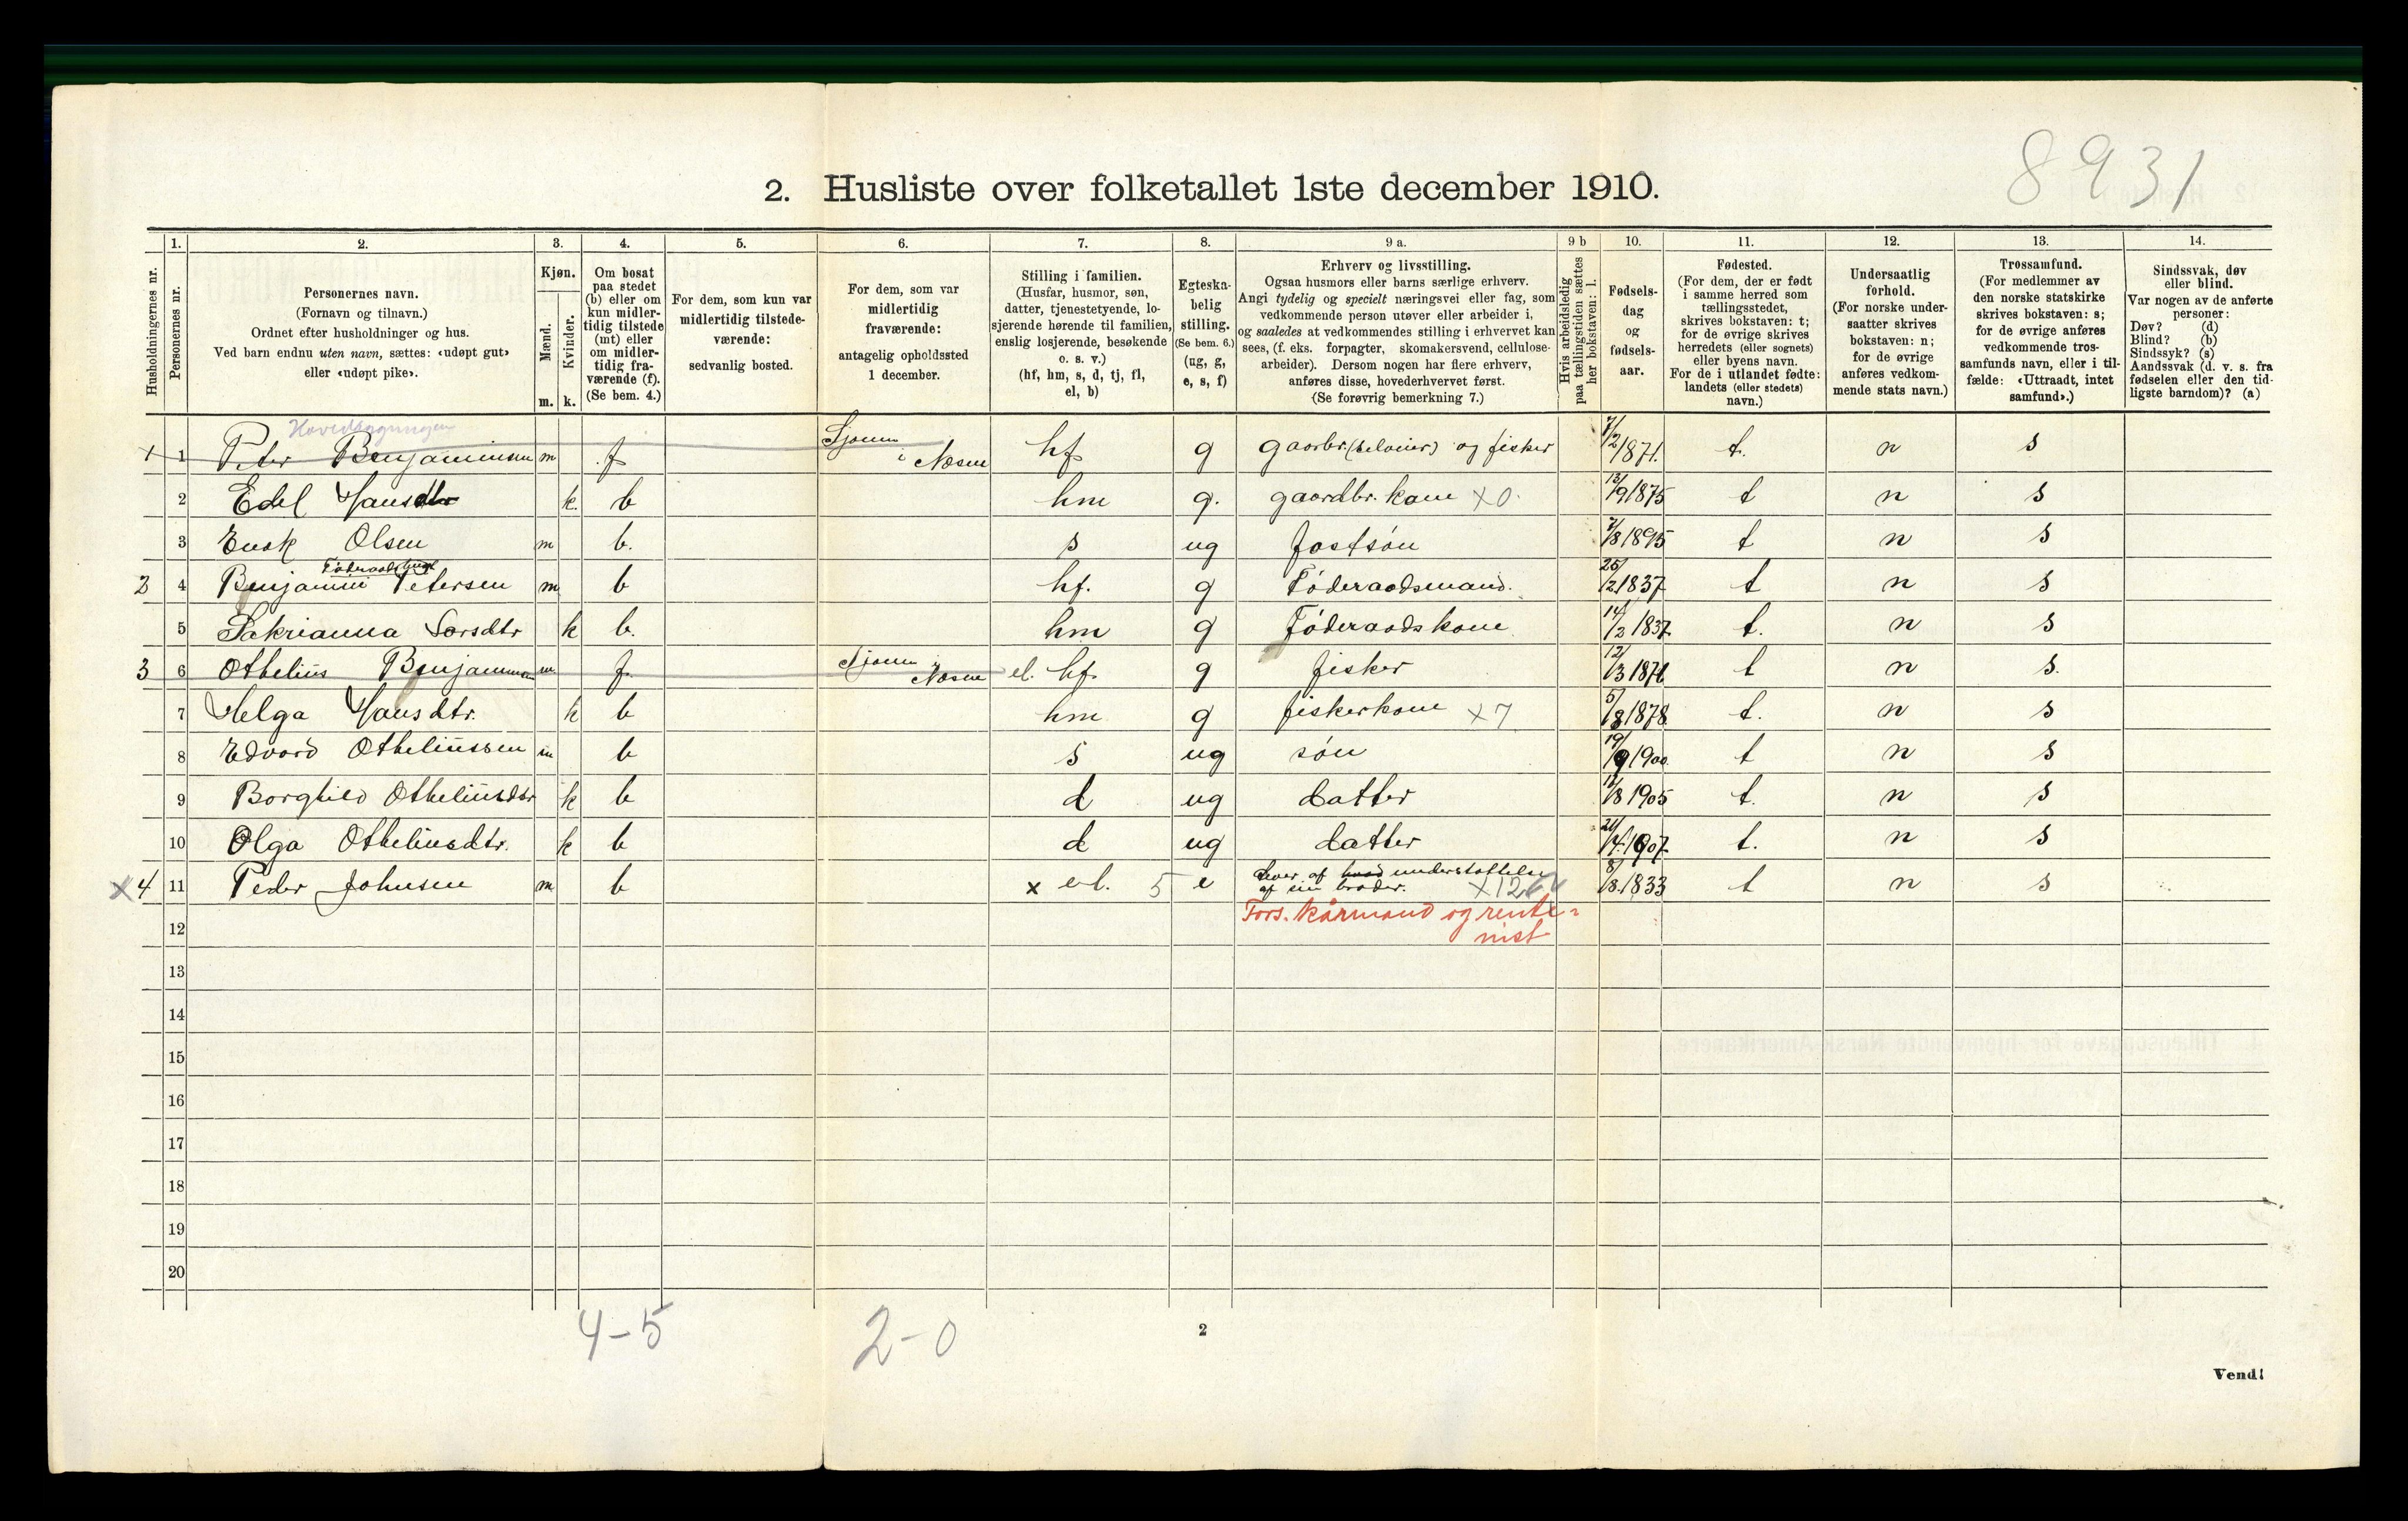 8931
2. Husliste over folketallet 1ste december 1910.
1. 2. 3. 4. 5. 6. 7. 8. 9 a. 9 b 10. 11. 12. 13. 14.
Husholdningernes nr.
Personernes nr.
Personernes navn.
(Fornavn og tilnavn.)
Ordnet efter husholdninger og hus.
Ved barn endnu uten navn, sættes: «udøpt gut»
eller «udøpt pike».
Kjøn.
Mænd.
Kvinder.
m. k.
Om bosat
paa stedet
(b) eller om
kun midler-
tidig tilstede
(mt) eller
om midler-
tidig fra-
værende (f).
(Se bem. 4.)
For dem, som kun var
midlertidig tilstede-
værende:
sedvanlig bosted.
For dem, som var
midlertidig
fraværende:
antagelig opholdssted
1 december.
Stilling i familien.
(Husfar, husmor, søn,
datter, tjenestetyende, lo-
sjerende hørende til familien,
enslig losjerende, besøkende
o. s. v.)
(hf, hm, s, d, tj, fl,
el, b)
Egteska-
belig
stilling.
(Se bem. 6.)
(ug, g,
e, s, f)
Erhverv og livsstilling.
Ogsaa husmors eller barns særlige erhverv.
Angi tydelig og specielt næringsvei eller fag, som
vedkommende person utøver eller arbeider i,
og saaledes at vedkommendes stilling i erhvervet kan
sees, (f. eks. forpagter, skomakersvend, cellulose-
arbeider). Dersom nogen har flere erhverv,
anføres disse, hovederhvervet først.
(Se forøvrig bemerkning 7.)
Hvis arbeidsledig
paa tællingstiden sættes
her bokstaven: l.
Fødsels-
dag
og
fødsels-
aar.
Fødested.
(For dem, der er født
i samme herred som
tællingsstedet,
skrives bokstaven: t;
for de øvrige skrives
herredets (eller sognets)
eller byens navn.
For de i utlandet fødte:
landets (eller stedets)
navn.)
Undersaatlig
forhold.
(For norske under-
saatter skrives
bokstaven: n;
for de øvrige
anføres vedkom-
mende stats navn.)
Trossamfund.
(For medlemmer av
den norske statskirke
skrives bokstaven: s;
for de øvrige anføres
vedkommende tros-
samfunds navn, eller i til-
fælde: «Uttraadt, intet
samfund».)
Sindssvak, døv
eller blind.
Var nogen av de anførte
personer:
Døv? (d)
Blind? (b)
Sindssyk? (s)
Aandssvak (d. v. s. fra
fødselen eller den tid-
ligste barndom)? (a)
Hovedbygningen
1 1 Peter Benjaminsen m f Sjona i Næsne hf g gaardbr. (selveier) og fisker 7/2 1871. t. n s
2 Edel Hansdtr k. b hm g. gaardbr. kone x0. 13/9 1875 t n s
3 Enok Olsen m b. s ug fostsön 7/8 1895 t n s
Föderaadsbygn
2 4 Benjamin Petersen m b hf. g Föderaadsmand. 25/2 1837 t n s
5 Sakrianna Larsdtr k b. hm g Föderaadskone 14/2 1837 t. n s
3 6 Othelius Benjaminsen m f. Sjona i Næsne el. hf. g fisker 12/3 1871 t n s.
7 Helga Hansdtr. k b hm g fiskerkone x7 5/8 1878 t. n s
8 Edvard Otheliussen m b s ug sön 19/9 1900. t n s
9 Borghild Otheliusdtr k b d ug datter 11/8 1905 t. n s
10 Olga Otheliusdtr. k b d ug datter 21/4 1907. t. n s
x4 11 Peder Johnsen m b x el. 5 e Lever af understöttelse
af sin broder. 8/8. 1833 t n s
Fors. kårmand og rente-
nist
12
13
14
15
16
17
18
19
20
4-5 2-0
2
Vend!